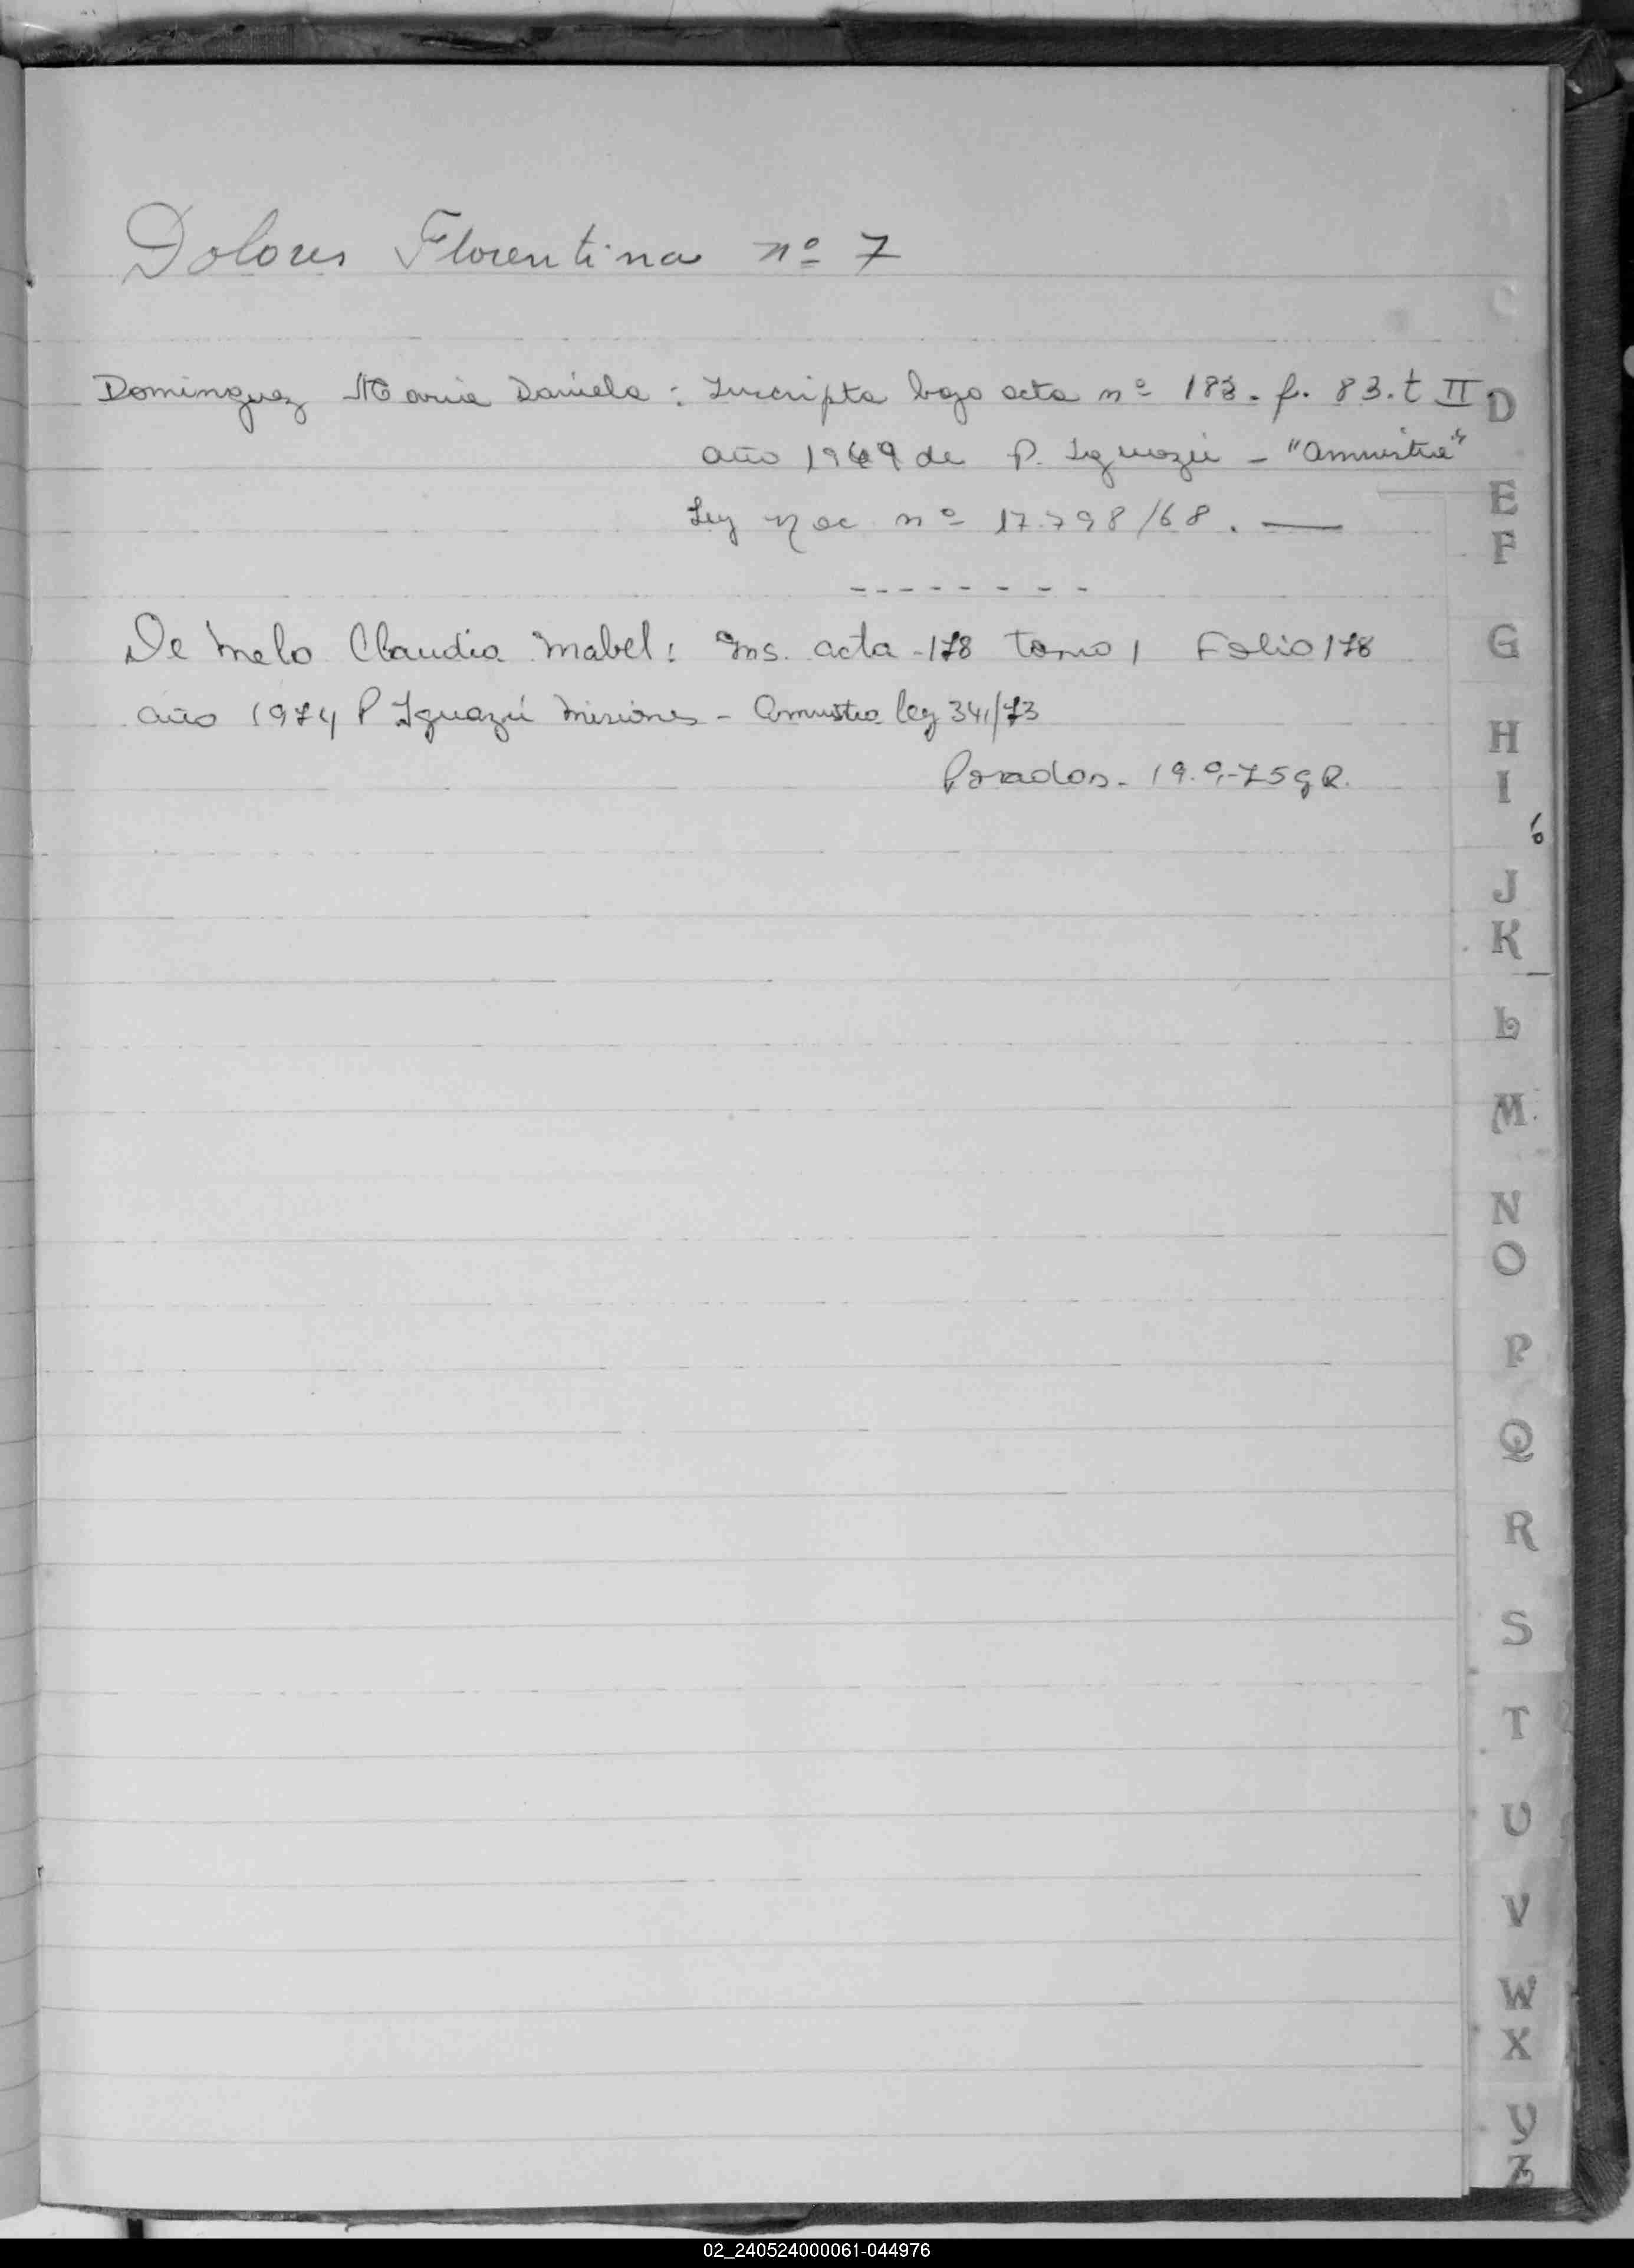 Dolores Florentina nº 7
Dominguez Maria Daniela : Inscripta bajo acta nº 183. f. 83. t II
año 1969 de P. Iguazú - "Amnistia"
Ley Nac nº 17.798/68. —
- - - - - - - -
De Melo Claudia Mabel: Ins. acta - 178 tomo 1 Folio 178
año 1974 P Iguazú Misiones - Amnistia ley 341/73
Posadas - 19.9-75
D
E
F
G
H
I
J
K
L
M
N
O
P
Q
R
S
T
U
V
W
X
Y
Z
02_240524000061-044976